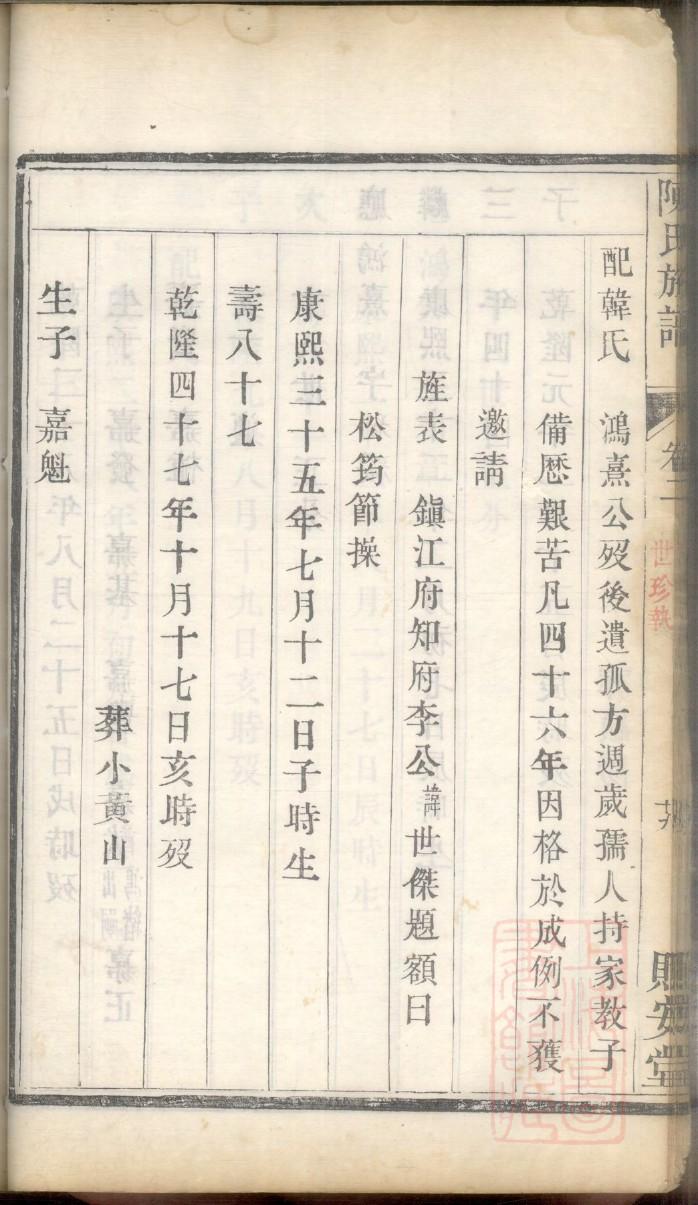 陳氏族譜
卷二
世珍執
賜安堂
配韓氏 鴻熹公歿後遺孤方週歲孺人持家教子
備歷艱苦凡四十六年因格於成例不獲
邀請
旌表 鎮江府知府李公諱世傑題額曰
松筠節操
康熙三十五年七月十二日子時生
壽八十七
乾隆四十七年十月十七日亥時歿
葬小黃山
生子 嘉魁